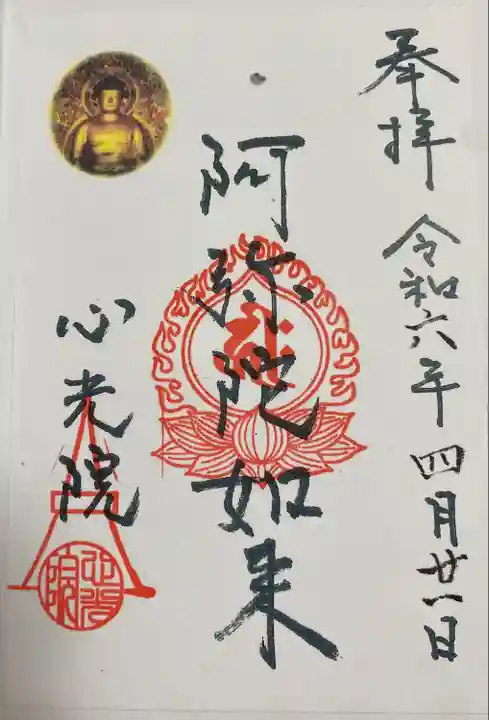 奉拝 令和六年 四月廿一日
阿弥陀如来
心光院
心光院